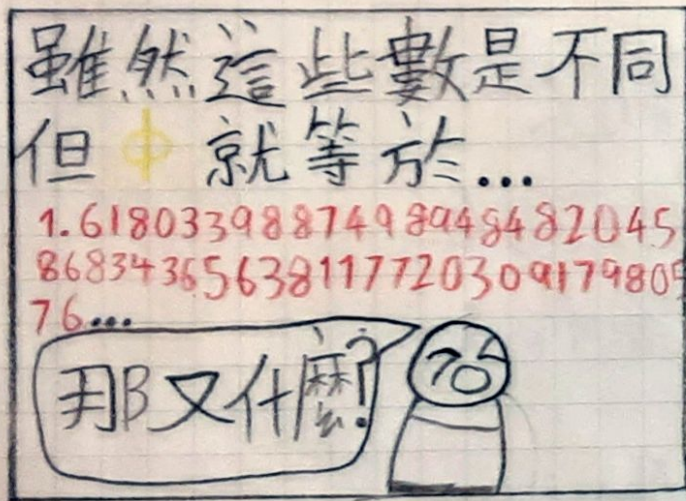 雖然這些數是不同
但 ф 就等於...
1.6180339887498948482045
86834365638117720309179805
76...
那又什麼?!